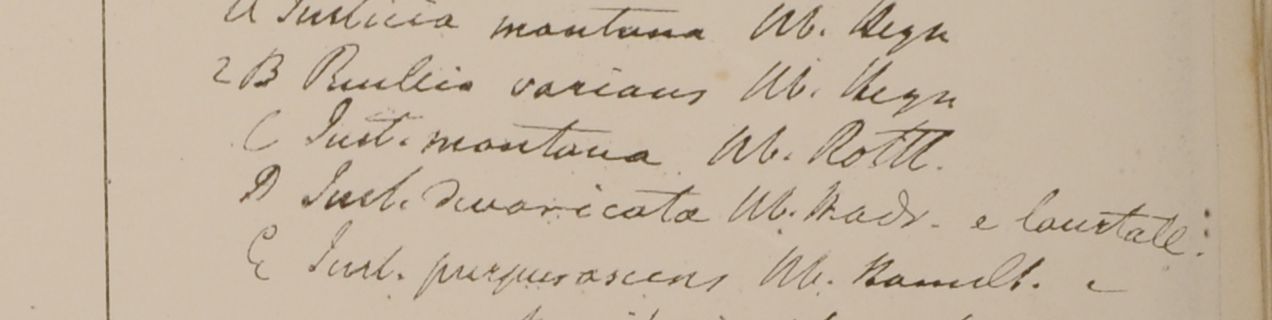 A Justicia montana Hb. Heyn
2 B Ruellia varians Hb. Heyn
C Just. montana Hb. Rottl.
D Just. divaricata Hb. Madr. e Courtall:
E Just. purpurascens Hb. Hamilt. e